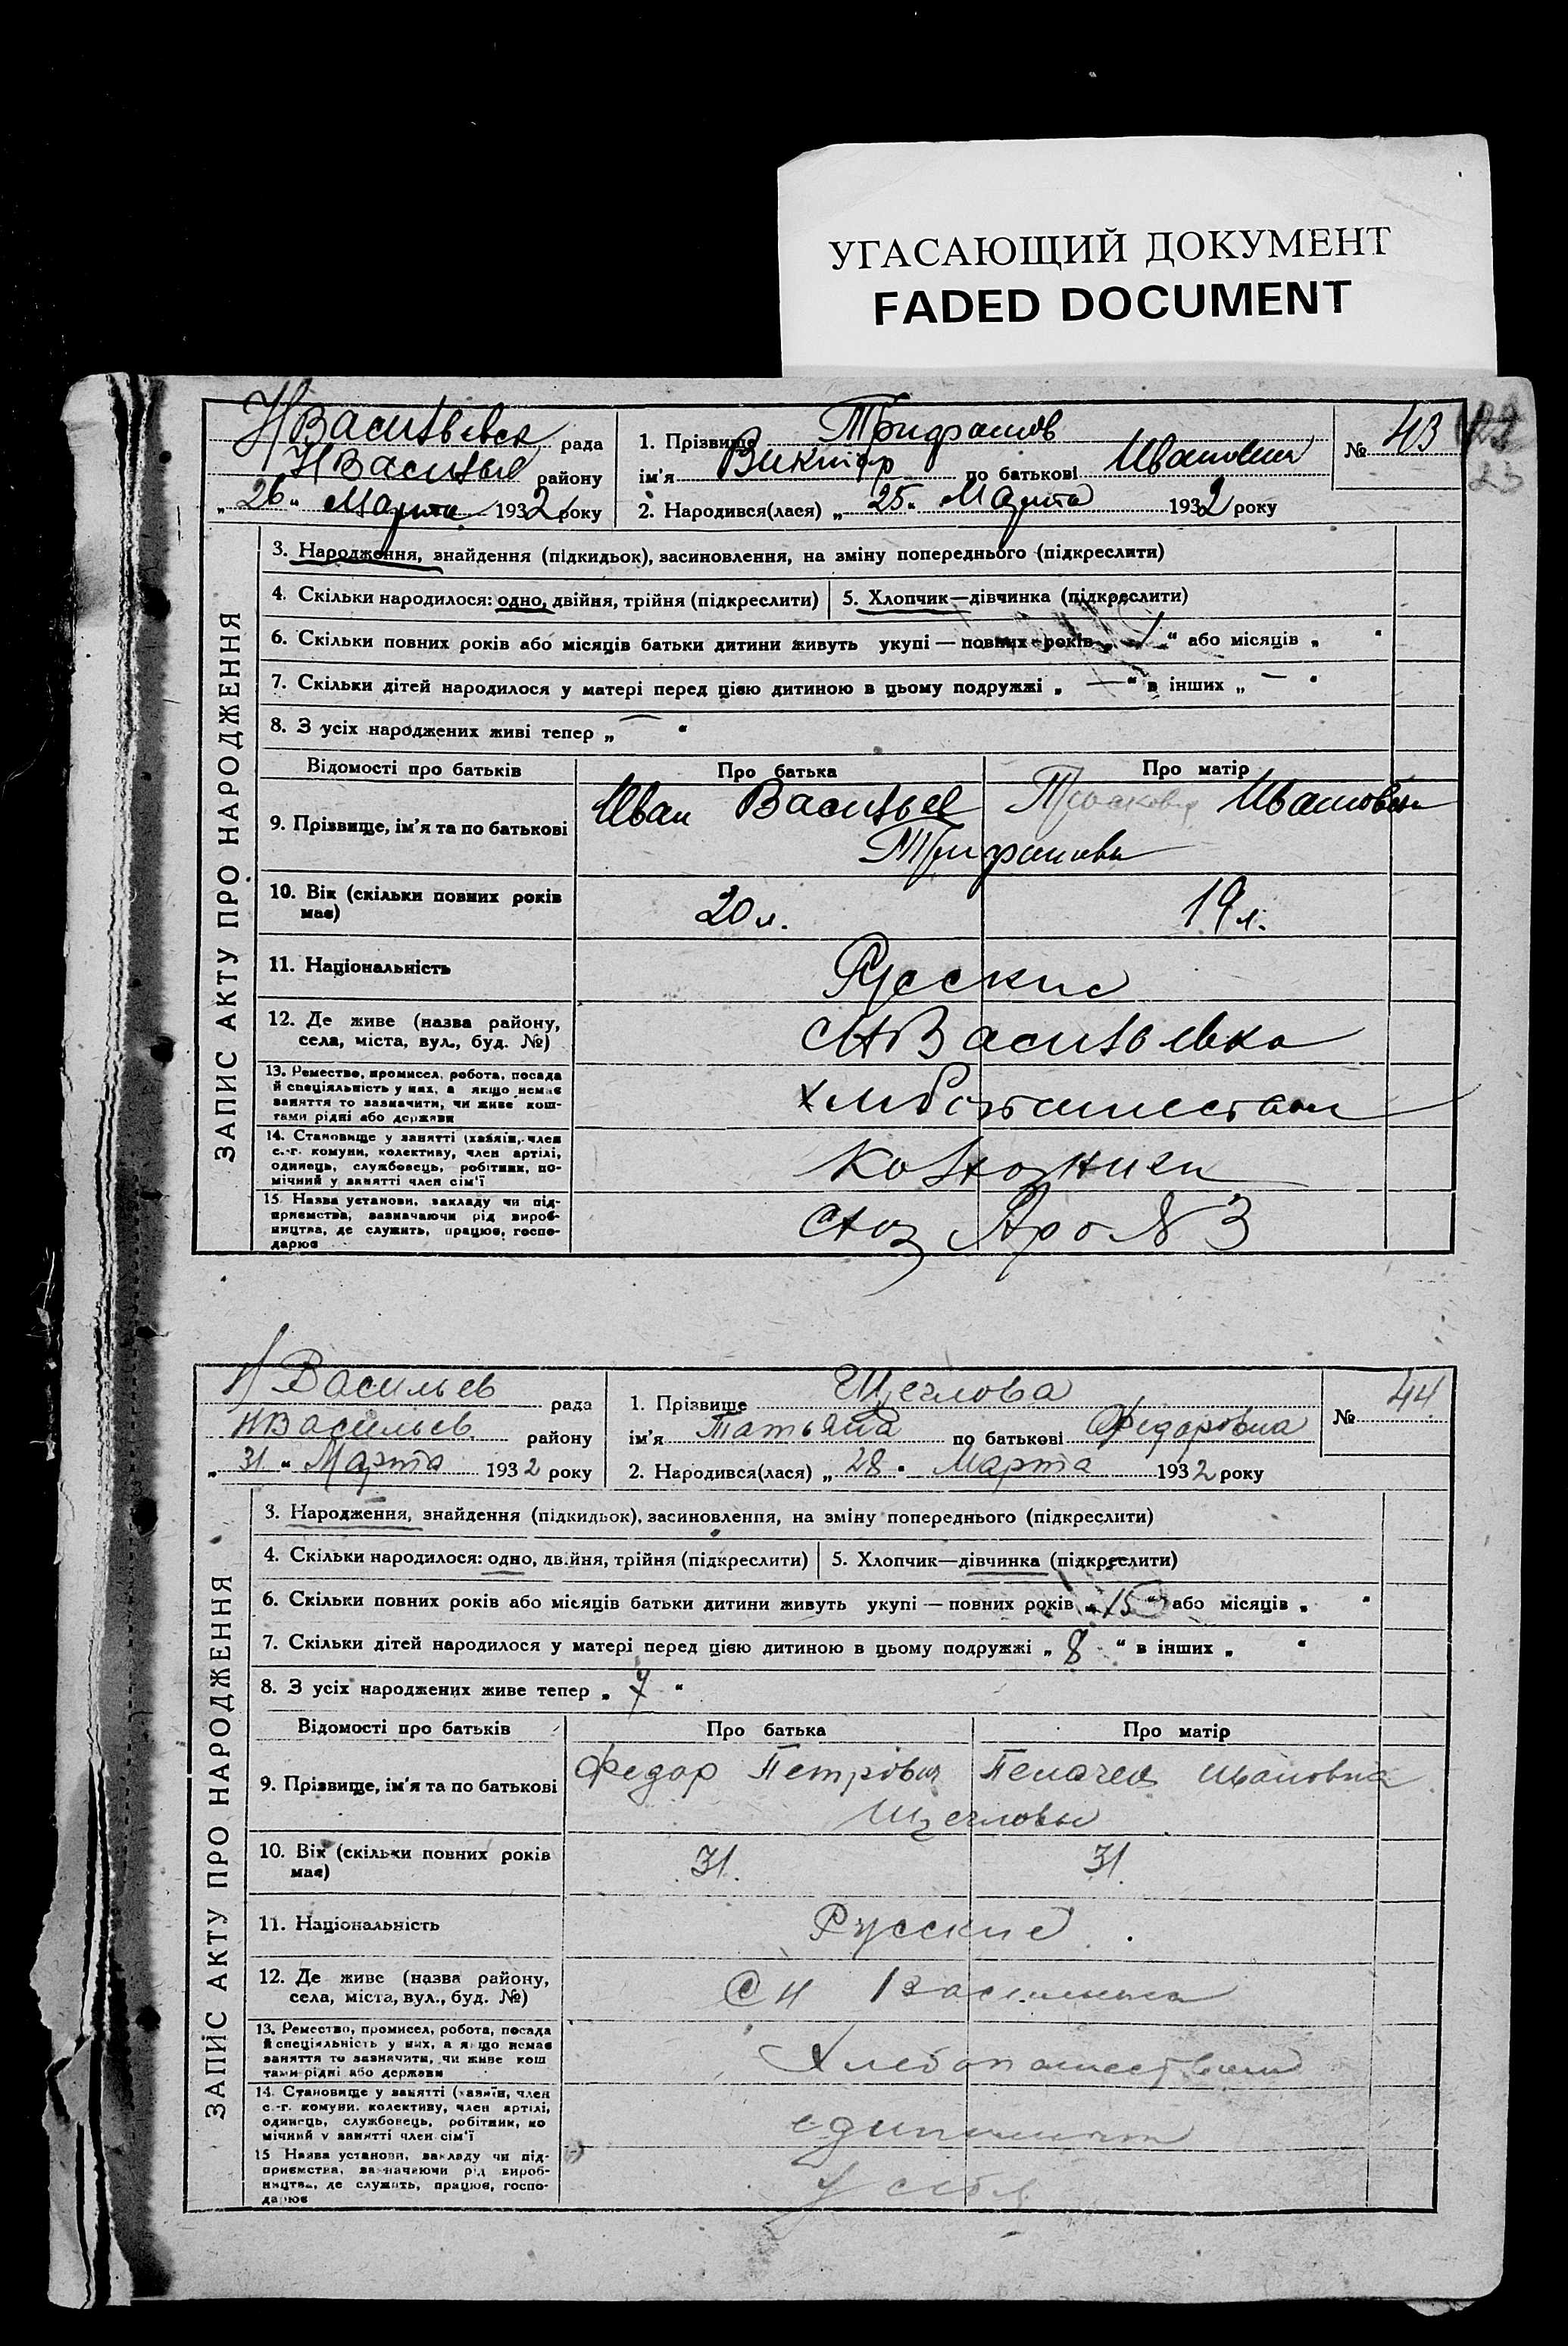 УГАСАЮЩИЙ ДОКУМЕНТ
FADED DOCUMENT
НВасильевск рада
НВасилье району
„26“ Марта 1932 року
1. Прізвище Трифанов
ім'я Виктор по батькові Иванович
2. Народився(лася) „25“ Марта 1932 року
№ 43
23
ЗАПИС АКТУ ПРО НАРОДЖЕННЯ
3. Народження, знайдення (підкидьок), засиновлення, на зміну попереднього (підкреслити)
4. Скільки народилося: одно, двійня, трійня (підкреслити) 5. Хлопчик—дівчинка (підкреслити)
6. Скільки повних років або місяців батьки дитини живуть укупі — повних років „1“ або місяців „ “
7. Скільки дітей народилося у матері перед цією дитиною в цьому подружжі „—“ в інших „—“
8. З усіх народжених живі тепер „—“
Відомості про батьків Про батька Про матір
9. Прізвище, ім'я та по батькові Иван Василье Прасковя Ивановна
Трифановы
10. Вік (скільки повних років має) 20 л. 19 л.
11. Національність Русские
12. Де живе (назва району, села, міста, вул., буд. №) СНВасильевка
13. Ремество, промисел, робота, посада
й спеціяльність у них, а якщо немає
заняття то зазначити, чи живе кош-
тами рідні або держави
Хлебопашеством
14. Становище у занятті (хазяїн, член
с.-г. комуни, колективу, член артілі,
одинець, службовець, робітник, по-
мічний у занятті член сім'ї
Колхозники
15. Назва установи, закладу чи під-
приємства, зазначаючи рід вироб-
ництва, де служить, працює, госпо-
дарює
№ 3
Н Васильев рада
НВасильев. району
„31“ Марта 1932 року
1. Прізвище Щеглова
ім'я Татьяна по батькові Федоровна
2. Народився(лася) „28“ Марта 1932 року
№ 44
ЗАПИС АКТУ ПРО НАРОДЖЕННЯ
3. Народження, знайдення (підкидьок), засиновлення, на зміну попереднього (підкреслити)
4. Скільки народилося: одно, двійня, трійня (підкреслити) 5. Хлопчик—дівчинка (підкреслити)
6. Скільки повних років або місяців батьки дитини живуть укупі — повних років „15“ або місяців „ “
7. Скільки дітей народилося у матері перед цією дитиною в цьому подружжі „8“ в інших „ “
8. З усіх народжених живе тепер „7“
Відомості про батьків Про батька Про матір
9. Прізвище, ім'я та по батькові Федор Петрович Ивановна
Щегловы
10. Вік (скільки повних років має) 31. 31.
11. Національність Русские.
12. Де живе (назва району, села, міста, вул., буд. №) С Н Васильевка
13. Ремество, промисел, робота, посада
й спеціяльність у них, а якщо немає
заняття то зазначити, чи живе кош
тами рідні або держави
Хлебопашеством
14. Становище у занятті (хазяїн, член
с.-г. комуни, колективу, член артілі,
одинець, службовець, робітник, по
мічний у занятті член сім'ї
15 Назва установи, закладу чи під-
приємства, зазначаючи рід вироб-
ництва, де служить, працює, госпо-
дарює
У себя